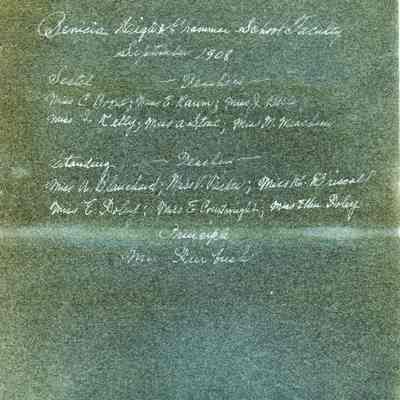 Benicia High & Grammar School Faculty
September 1908
Seated — Teachers —
Miss C. ; Miss E. ; Miss J.
Miss F. Kelly; Miss A. Stone; Miss M.
Standing — Teachers —
Miss A. Blanchard; Miss ; Miss K. Driscoll
Miss C. Foley; Miss E. Courtwright; Miss Ellen Foley
Principal
Mr.